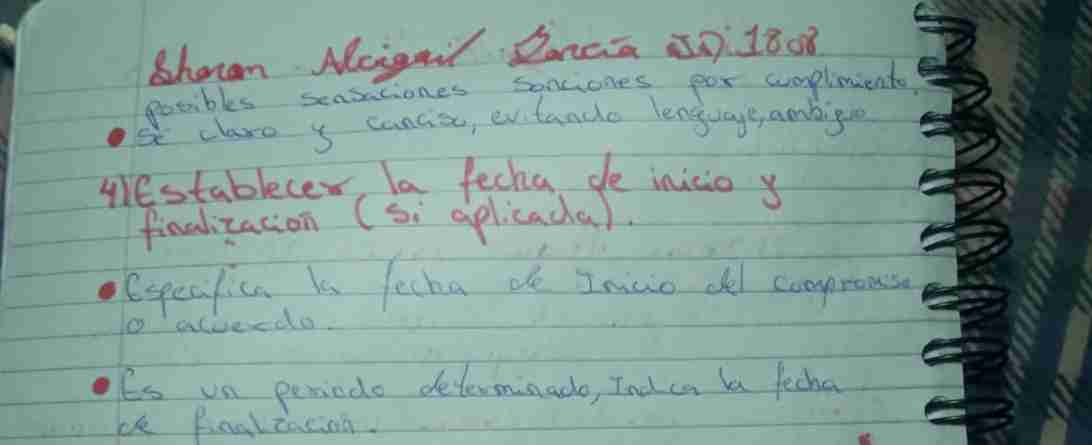 Sharon Alcigail García ID:1808
posibles sensaciones sanciones por cumplimiento.
• Sé claro y canciso, evitando lenguaje, ambiguo
4) Establecer la fecha de inicio y
finalización (si aplicada).
• Especifica la fecha de Inicio del compromiso
o acuerdo.
• Es un periodo determinado, Indica la fecha
de finalización.